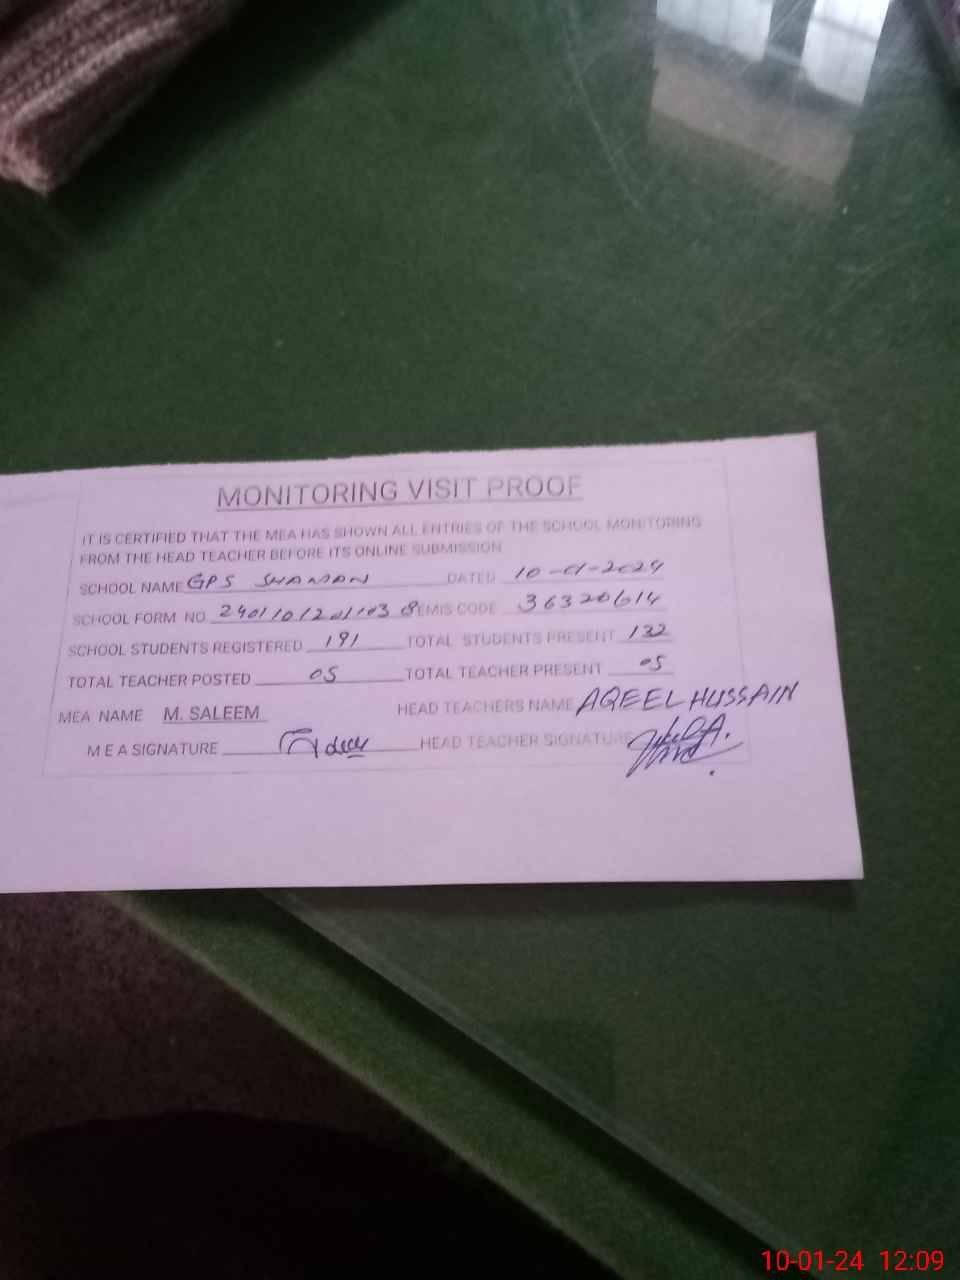 MONITORING VISIT PROOF
IT IS CERTIFIED THAT THE MEA HAS SHOWN ALL ENTRIES OF THE SCHOOL MONITORING
FROM THE HEAD TEACHER BEFORE ITS ONLINE SUBMISSION
SCHOOL NAME GPS DATED 10-01-2024
SCHOOL FORM NO. EMIS CODE 36320614
SCHOOL STUDENTS REGISTERED 191 TOTAL STUDENTS PRESENT 132
TOTAL TEACHER POSTED 05 TOTAL TEACHER PRESENT 05
MEA NAME M. SALEEM HEAD TEACHERS NAME AQEEL HUSSAIN
M E A SIGNATURE HEAD TEACHER SIGNATURE
10-01-24 12:09